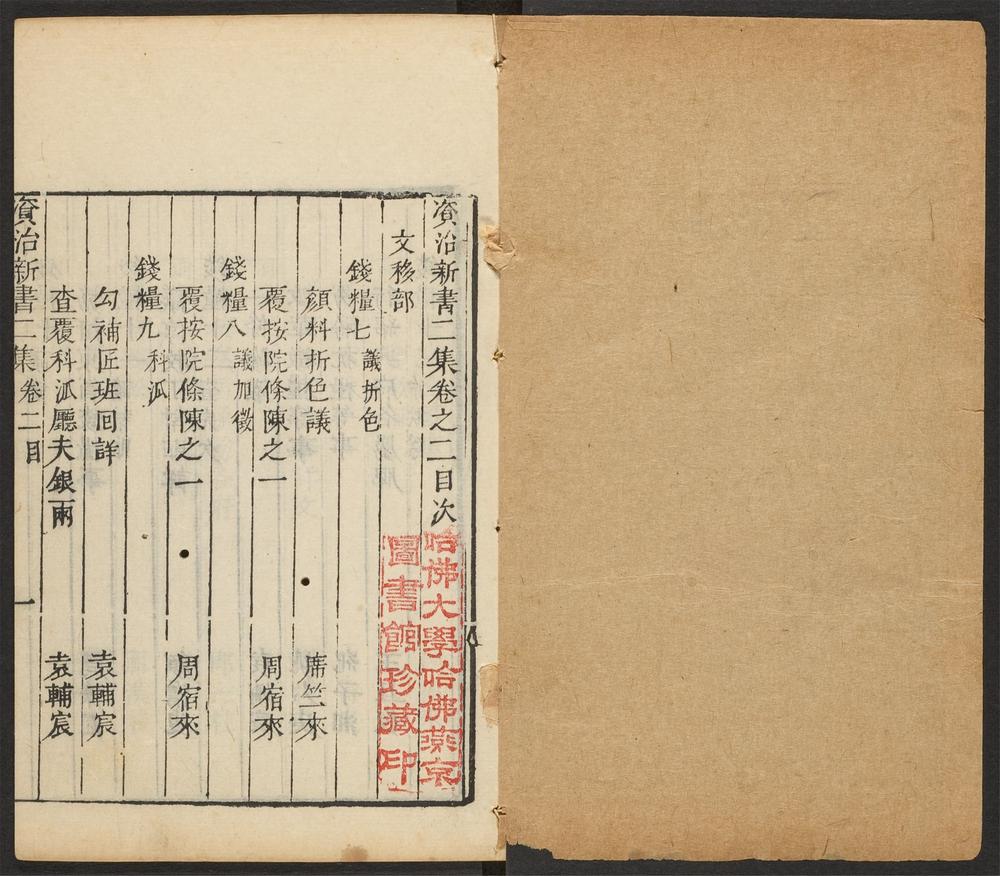 資治新書二集卷之二目次
文移部
錢糧七 議折色
顔料折色議 席竺來
覆按院條陳之一 周宿來
錢糧八 議加徵
覆按院條陳之一 周宿來
錢糧九 科派
勾補匠班回詳 袁輔宸
查覆科派廳夫銀兩 袁輔宸
資治新書二集 卷二目 一
哈佛大學哈佛燕京
圖書館珍藏印